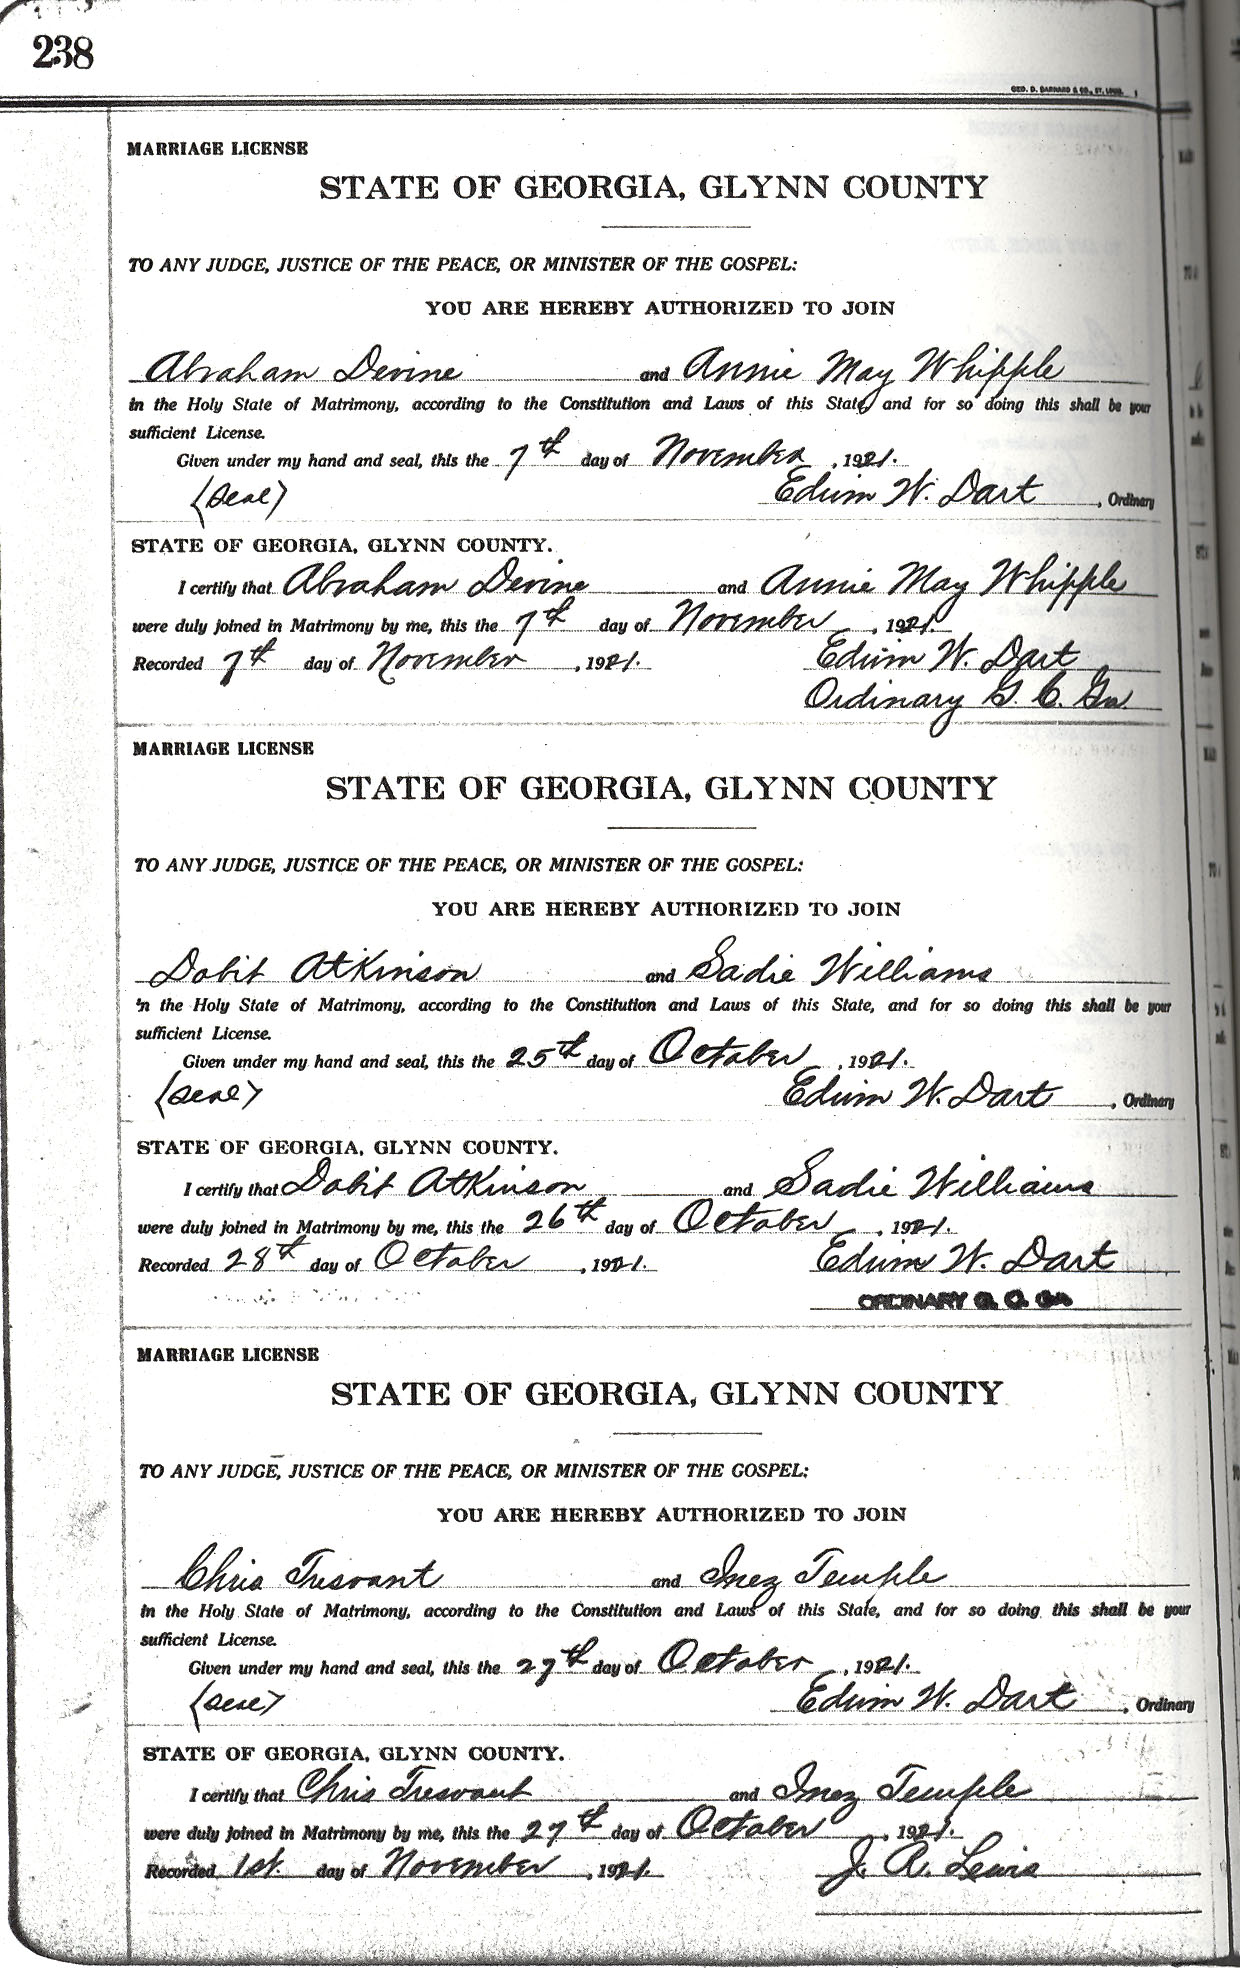 238
GEO. D. BARNARD & CO., ST. LOUIS.
MARRIAGE LICENSE
STATE OF GEORGIA, GLYNN COUNTY
TO ANY JUDGE, JUSTICE OF THE PEACE, OR MINISTER OF THE GOSPEL:
YOU ARE HEREBY AUTHORIZED TO JOIN
Abraham Devine and Annie May Whipple
in the Holy State of Matrimony, according to the Constitution and Laws of this State, and for so doing this shall be your
sufficient License.
Given under my hand and seal, this the 7th day of November, 1921.
(Seal) Edwin W. Dart, Ordinary
STATE OF GEORGIA, GLYNN COUNTY.
I certify that Abraham Devine and Annie May Whipple
were duly joined in Matrimony by me, this the 7th day of November, 1921.
Recorded 7th day of November, 1921. Edwin W. Dart
Ordinary G. C. Ga.
MARRIAGE LICENSE
STATE OF GEORGIA, GLYNN COUNTY
TO ANY JUDGE, JUSTICE OF THE PEACE, OR MINISTER OF THE GOSPEL:
YOU ARE HEREBY AUTHORIZED TO JOIN
Dobit Atkinson and Sadie Williams
in the Holy State of Matrimony, according to the Constitution and Laws of this State, and for so doing this shall be your
sufficient License.
Given under my hand and seal, this the 25th day of October, 1921.
(Seal) Edwin W. Dart, Ordinary
STATE OF GEORGIA, GLYNN COUNTY.
I certify that Dobit Atkinson and Sadie Williams
were duly joined in Matrimony by me, this the 26th day of October, 1921.
Recorded 28th day of October, 1921. Edwin W. Dart
ORDINARY G. C. GA.
MARRIAGE LICENSE
STATE OF GEORGIA, GLYNN COUNTY
TO ANY JUDGE, JUSTICE OF THE PEACE, OR MINISTER OF THE GOSPEL:
YOU ARE HEREBY AUTHORIZED TO JOIN
Chris Tresvant and Inez Temple
in the Holy State of Matrimony, according to the Constitution and Laws of this State, and for so doing this shall be your
sufficient License.
Given under my hand and seal, this the 27th day of October, 1921.
(Seal) Edwin W. Dart, Ordinary
STATE OF GEORGIA, GLYNN COUNTY.
I certify that Chris Tresvant and Inez Temple
were duly joined in Matrimony by me, this the 27th day of October, 1921.
Recorded 1st. day of November, 1921. J. R. Lewis